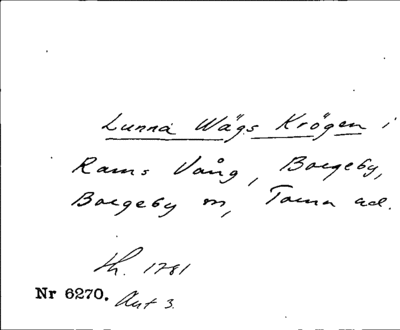 Lunna Wägs Krögen i
Rams Vång, Borgeby,
Borgeby sn, Torna hd.
Sk. 1781
Nr 6270. Akt 3.